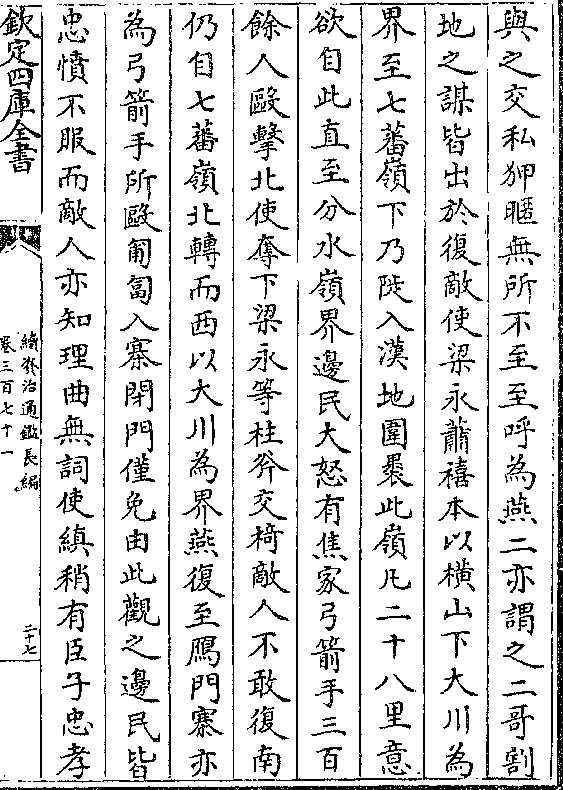 與之交私狎暱無所不至至呼為燕二亦謂之二哥割
地之謀皆出於復敵使梁永蕭禧本以橫山下大川為
界至七蕃嶺下乃陡入漢地圍褁此嶺凡二十八里意
欲自此直至分水嶺界邊民大怒有焦家弓箭手三百
餘人毆擊北使奪下梁永等柱斧交椅敵人不敢復南
仍自七蕃嶺北轉而西以大川為界燕復至鴈門寨亦
為弓箭手所毆匍匐入寨閉門僅免由此觀之邊民皆
忠憤不服而敵人亦知理曲無詞使縝稍有臣子忠孝
欽定四庫全書
續資治通鑑長編
卷三百七十一
二十七